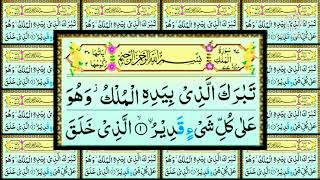 سُوْرَةُ الْمُلْكِ
بِسْمِ اللّٰهِ الرَّحْمٰنِ الرَّحِيْمِ
تَبٰرَكَ الَّذِیْ بِیَدِهِ الْمُلْكُ ؗ وَهُوَ
عَلٰی كُلِّ شَیْءٍ قَدِیْرُ ۙ﴿۱﴾ الَّذِیْ خَلَقَ